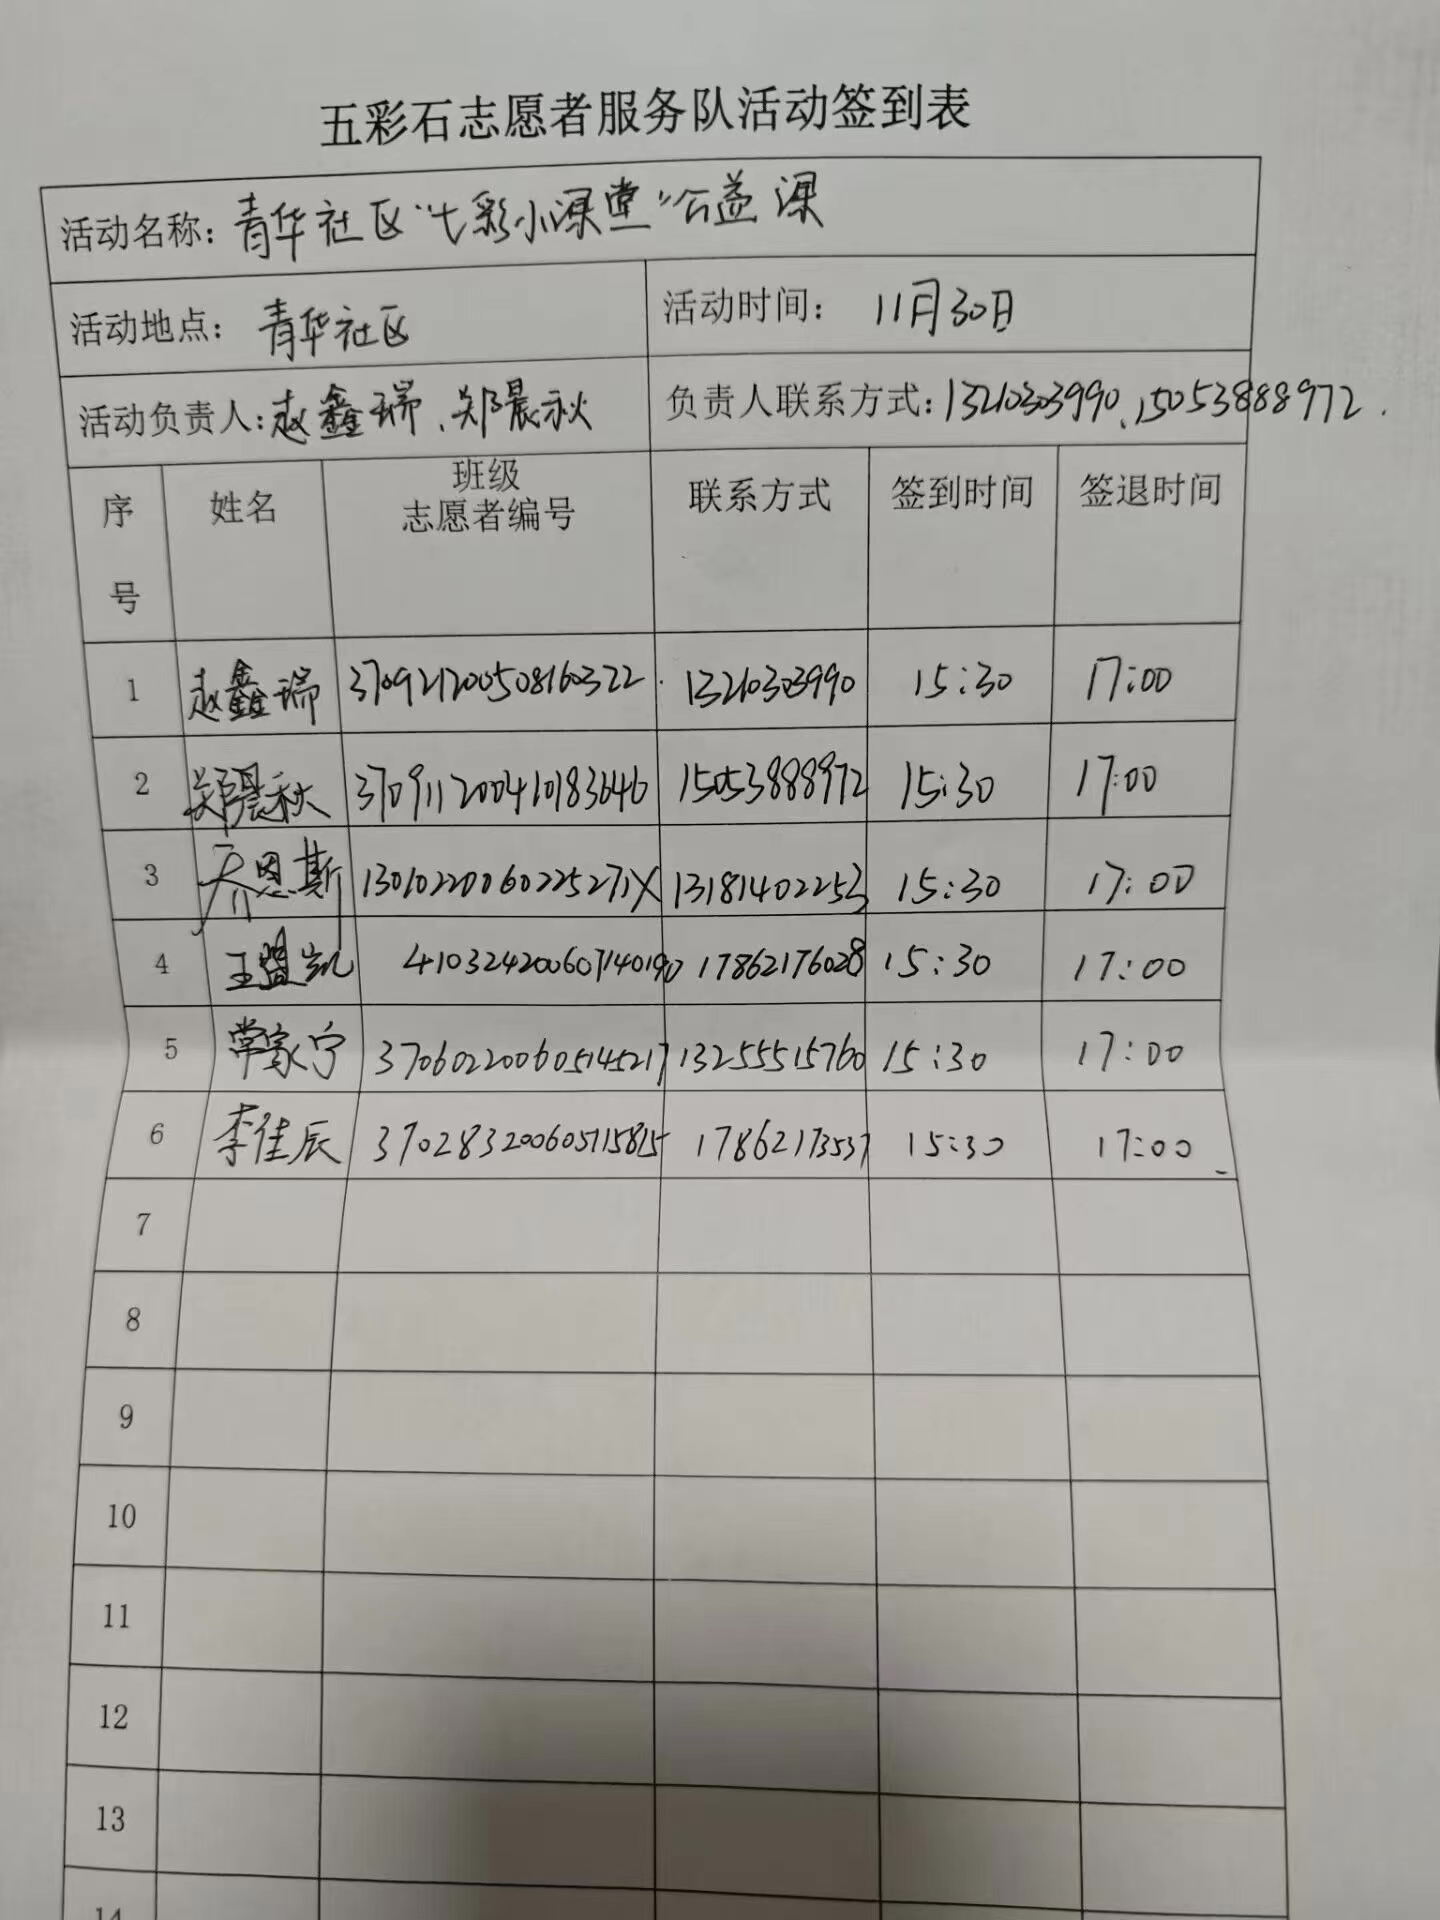 五彩石志愿者服务队活动签到表
活动名称：青华社区“七彩小课堂”公益课
活动地点：青华社区 活动时间：11月30日
活动负责人：赵鑫瑞、郑晨秋 负责人联系方式：13210303990、15053888972.
序号 姓名 班级志愿者编号 联系方式 签到时间 签退时间
1 赵鑫瑞 370921200508160322 13210303990 15:30 17:00
2 郑晨秋 370911200410183646 15053888972 15:30 17:00
3 乔恩斯 13010220060225271X 13181402253 15:30 17:00
4 王盟凯 410324200607140190 17862176028 15:30 17:00
5 常家宁 370602200605145217 13255515760 15:30 17:00
6 李佳辰 370283200605115815 17862173537 15:30 17:00
7
8
9
10
11
12
13
14